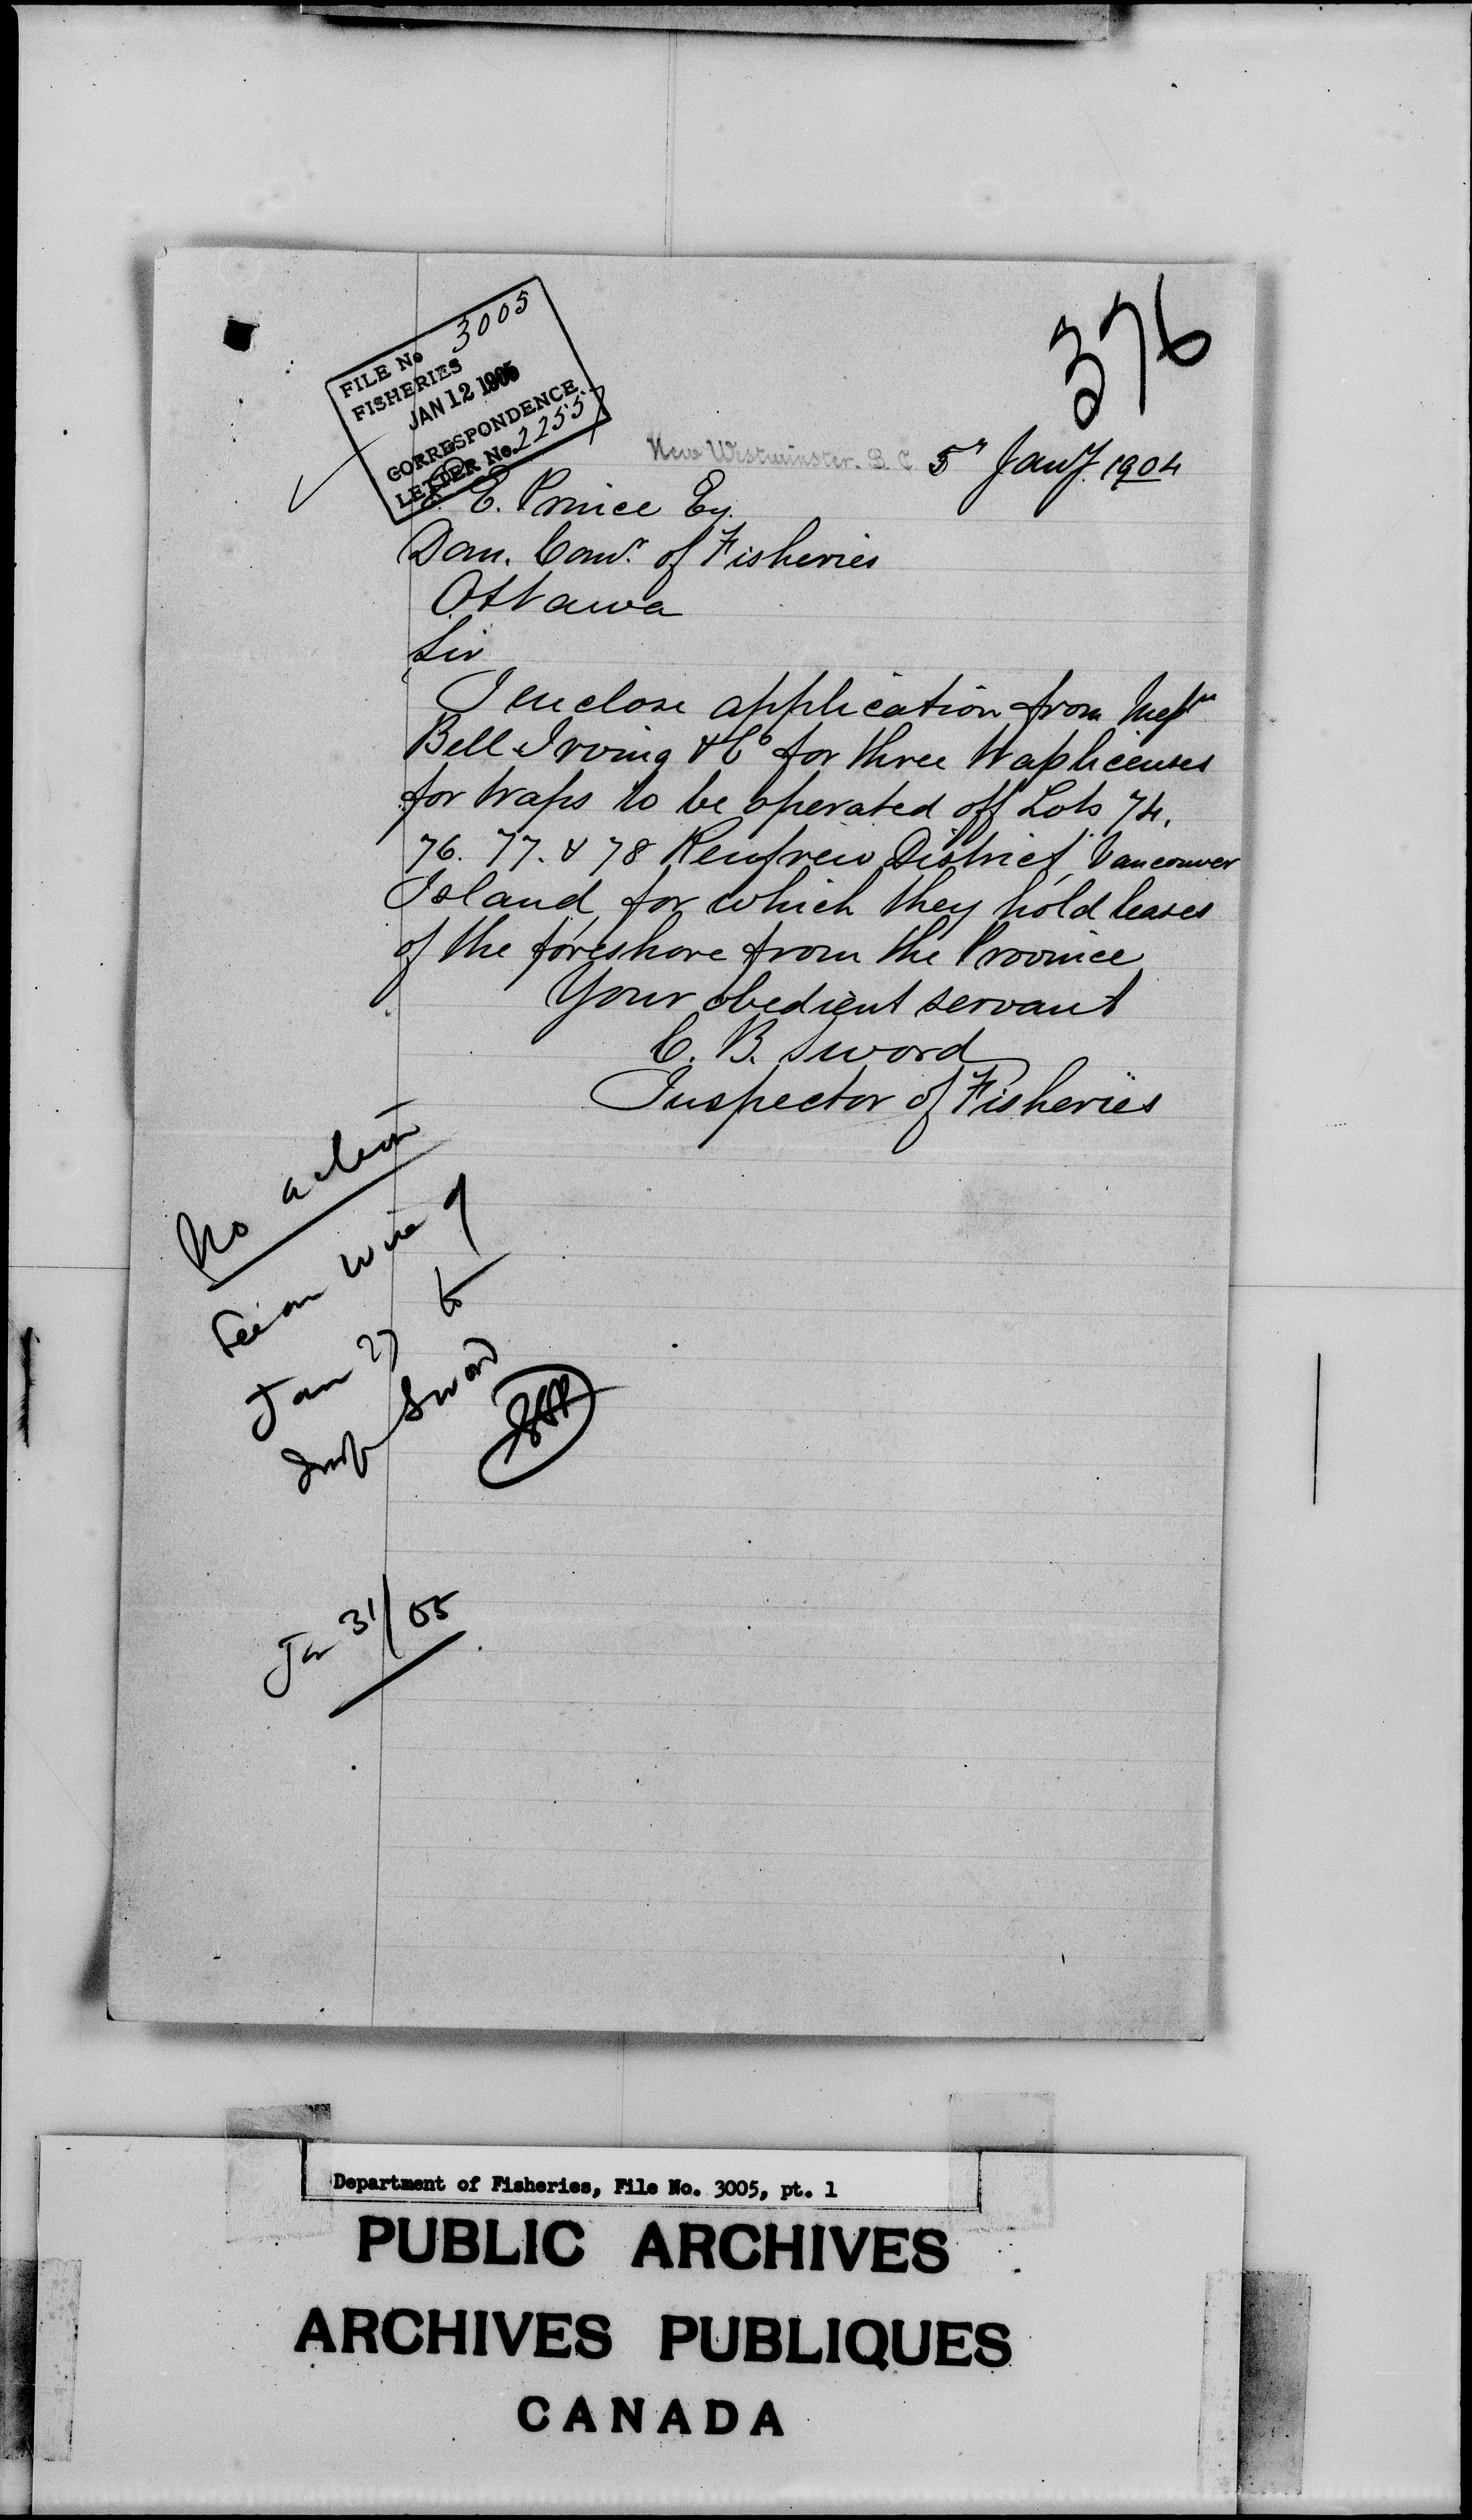 376
FILE No 3005
FISHERIES
JAN 12 1905
CORRESPONDENCE
LETTER No. 2255
New Westminster. B. C. 5th Jany. 1904
E. Prince Esq.
Dom. Comr. of Fisheries
Ottawa
Sir
I enclose application from Messrs
Bell-Irving & Co for three trap licenses
for traps to be operated off Lots 74.
76. 77. & 78 Renfrew District, Vancouver
Island, for which they hold leases
of the foreshore from the Province
Your obedient servant
C. B. Sword
Inspector of Fisheries
No action
wire of
Jan 27 to
Insp Sword
Jan 31/05
Department of Fisheries, File No. 3005, pt. 1
PUBLIC ARCHIVES
ARCHIVES PUBLIQUES
CANADA